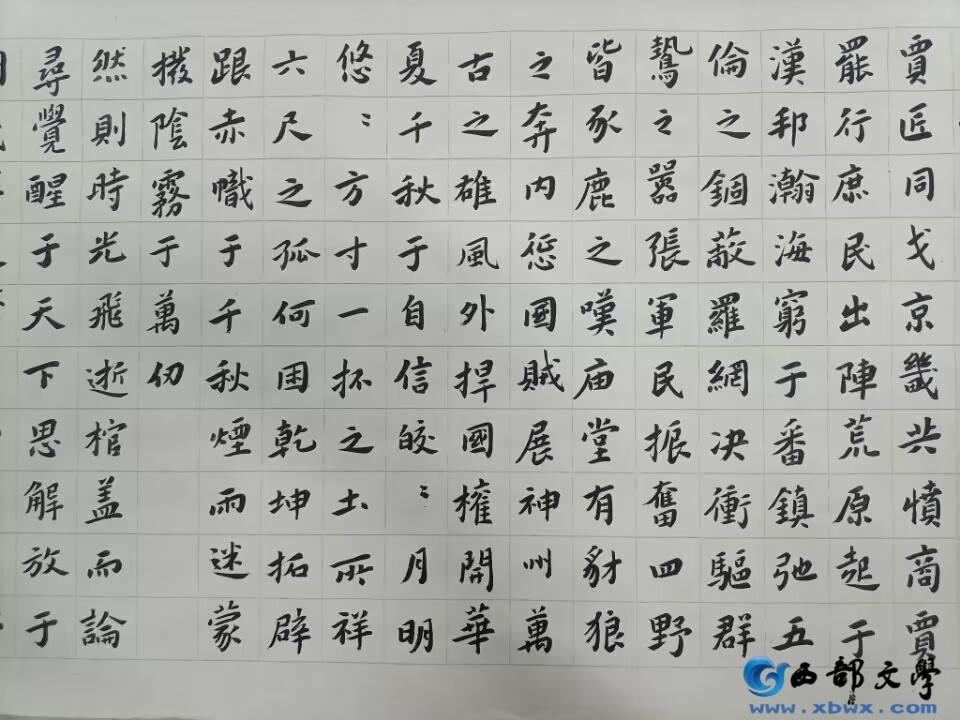 賈匠同戈京畿共憤商賈
罷行庶民出陣荒原起于
漢邦瀚海窮于番鎮弛五
倫之錮蔽羅網决衝驅群
鷙之囂張軍民振奮四野
皆豕鹿之嘆庙堂有豺狼
之奔内愆國賊展神州萬
古之雄風外捍國権開華
夏千秋于自信皎〻月明
悠〻方寸一抔之土所祥
六尺之孤何困乾坤拓辟
跟赤幟于千秋煙雨迷蒙
撥陰霧于萬仞
然則時光飛逝棺盖而論
尋覺醒于天下思解放于
西部文學
www.xbwx.com